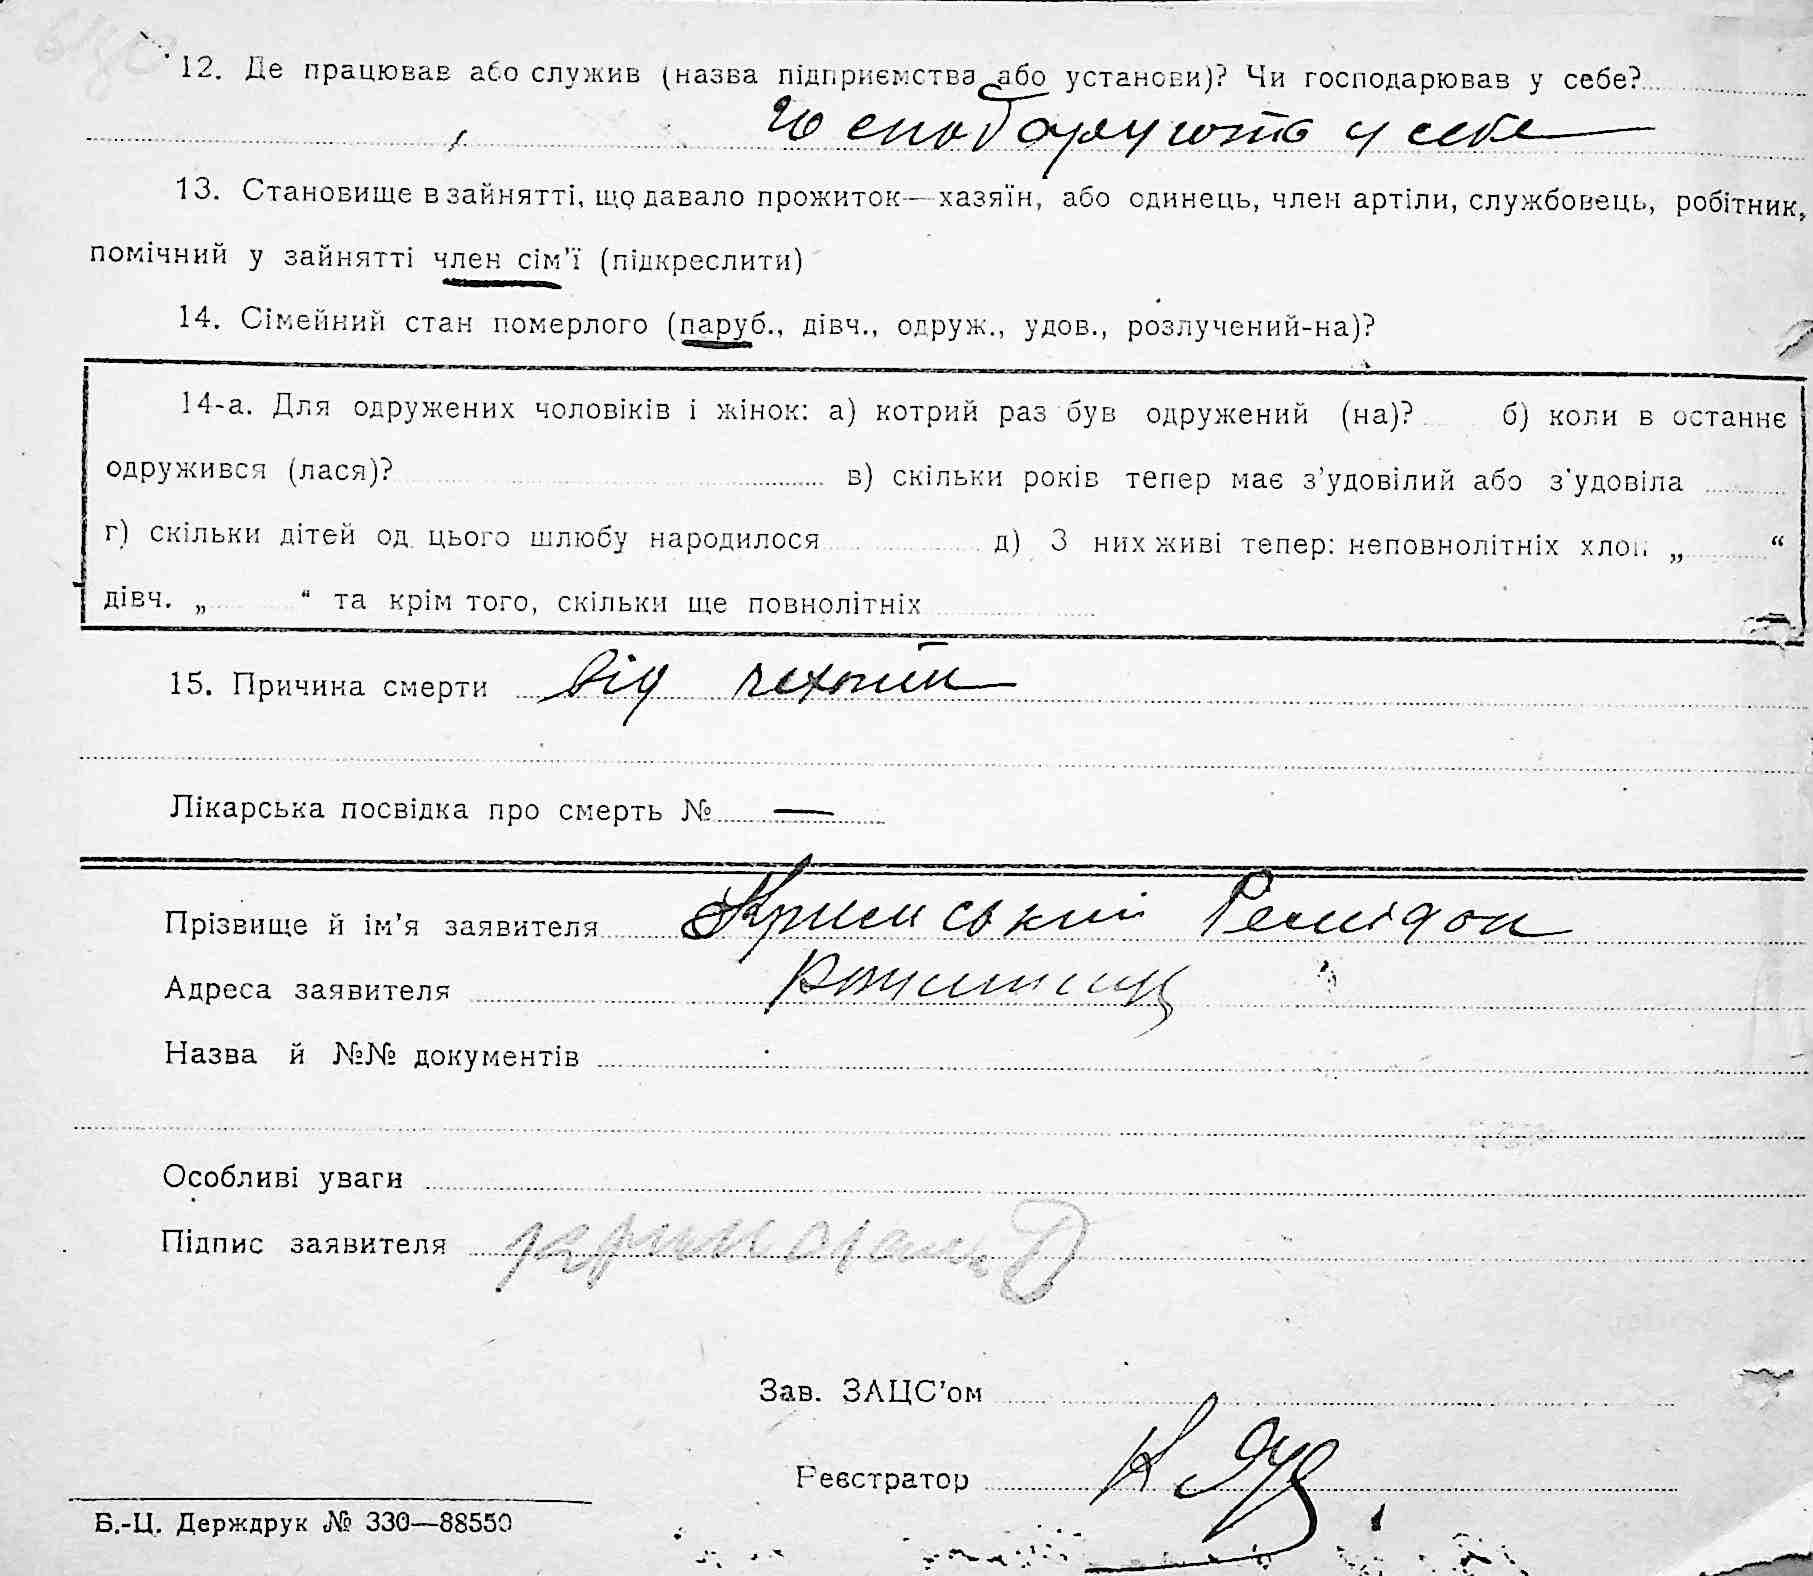 12. Де працював або служив (назва підприємства або установи)? Чи господарював у себе?
Господарують у себе
13. Становище в зайнятті, що давало прожиток—хазяїн, або одинець, член артіли, службовець, робітник,
помічний у зайнятті член сім'ї (підкреслити)
14. Сімейний стан померлого (паруб., дівч., одруж., удов., розлучений-на)?
14-а. Для одружених чоловіків і жінок: а) котрий раз був одружений (на)? б) коли в останнє
одружився (лася)? в) скільки років тепер має з'удовілий або з'удовіла
г) скільки дітей од цього шлюбу народилося д) З них живі тепер: неповнолітніх хлоп „ “
дівч. „ “ та крім того, скільки ще повнолітніх
15. Причина смерти від
Лікарська посвідка про смерть № —
Прізвище й ім'я заявителя Кримський
Адреса заявителя
Назва й №№ документів
Особливі уваги
Підпис заявителя
Зав. ЗАЦС'ом
Реєстратор
Б.-Ц. Держдрук № 330—88550